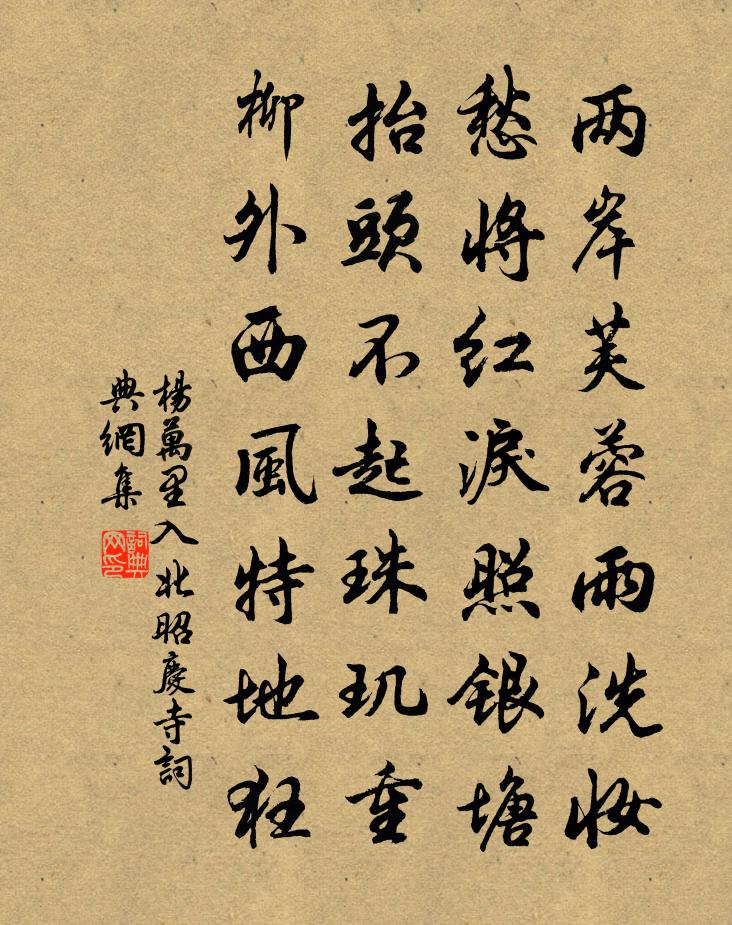 两岸芙蓉雨洗妆
愁将红淚照银塘
抬頭不起珠玑重
柳外西風特地狂
楊萬里入北昭慶寺詞
典網集
詞典网印